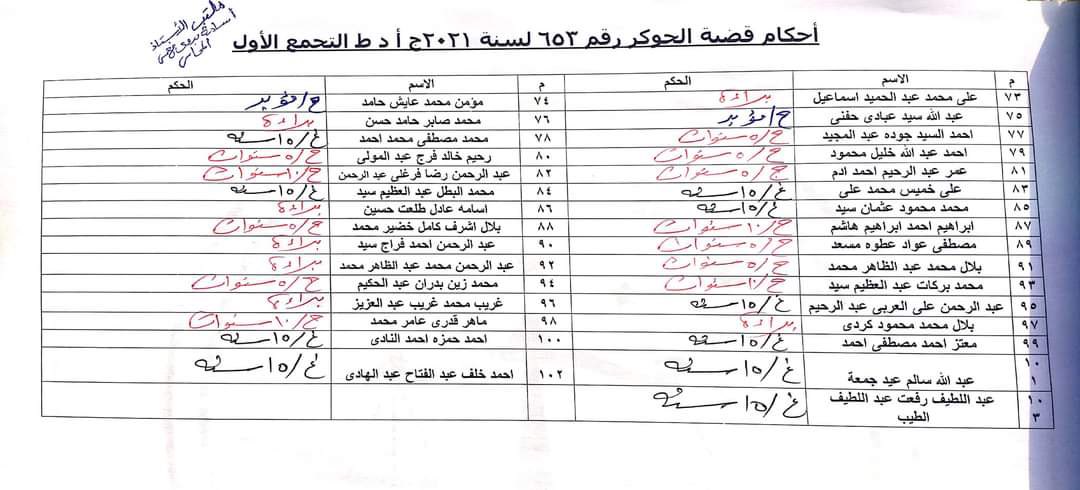 أحكام قضية الجوكر رقم ٦٥٣ لسنة ٢٠٢١ج أ د ط التجمع الأول
مكتب الأستاذ
المحامى
م الاسم الحكم م الاسم الحكم
٧٣ على محمد عبد الحميد اسماعيل براءة ٧٤ مؤمن محمد عايش حامد ح/مؤبد
٧٥ عبد الله سيد عبادى حفنى ح/مؤبد ٧٦ محمد صابر حامد حسن براءة
٧٧ احمد السيد جوده عبد المجيد ح/٥ سنوات ٧٨ محمد مصطفى محمد احمد غ/١٥ سنه
٧٩ احمد عبد الله خليل محمود ح/٥ سنوات ٨٠ رحيم خالد فرج عبد المولى ح/٥ سنوات
٨١ عمر عبد الرحيم احمد ادم ح/٥ سنوات ٨٢ عبد الرحمن رضا فرغلى عبد الرحمن ح/١٠ سنوات
٨٣ على خميس محمد على غ/١٥ سنه ٨٤ محمد البطل عبد العظيم سيد غ/١٥ سنه
٨٥ محمد محمود عثمان سيد غ/١٥ سنه ٨٦ اسامه عادل طلعت حسين براءة
٨٧ ابراهيم احمد ابراهيم هاشم ح/١٠ سنوات ٨٨ بلال اشرف كامل خضير محمد ح/٥ سنوات
٨٩ مصطفى عواد عطوه مسعد ح/ سنوات ٩٠ عبد الرحمن احمد فراج سيد براءة
٩١ بلال محمد عبد الظاهر محمد ح/٥ سنوات ٩٢ عبد الرحمن محمد عبد الظاهر محمد براءة
٩٣ محمد بركات عبد العظيم سيد ح/١٠ سنوات ٩٤ محمد زين بدران عبد الحكيم ح/٥ سنوات
٩٥ عبد الرحمن على العربى عبد الرحيم غ/١٥ سنه ٩٦ غريب محمد غريب عبد العزيز براءة
٩٧ بلال محمد محمود كردى براءة ٩٨ ماهر قدرى عامر محمد ح/١٠ سنوات
٩٩ معتز احمد مصطفى احمد غ/١٥ سنه ١٠٠ احمد حمزه احمد النادى غ/١٥ سنه
١٠
١ عبد الله سالم عيد جمعة غ/١٥ سنه ١٠٢ احمد خلف عبد الفتاح عبد الهادى غ/١٥ سنه
١٠ عبد اللطيف رفعت عبد اللطيف غ/١٥ سنه
٣ الطيب